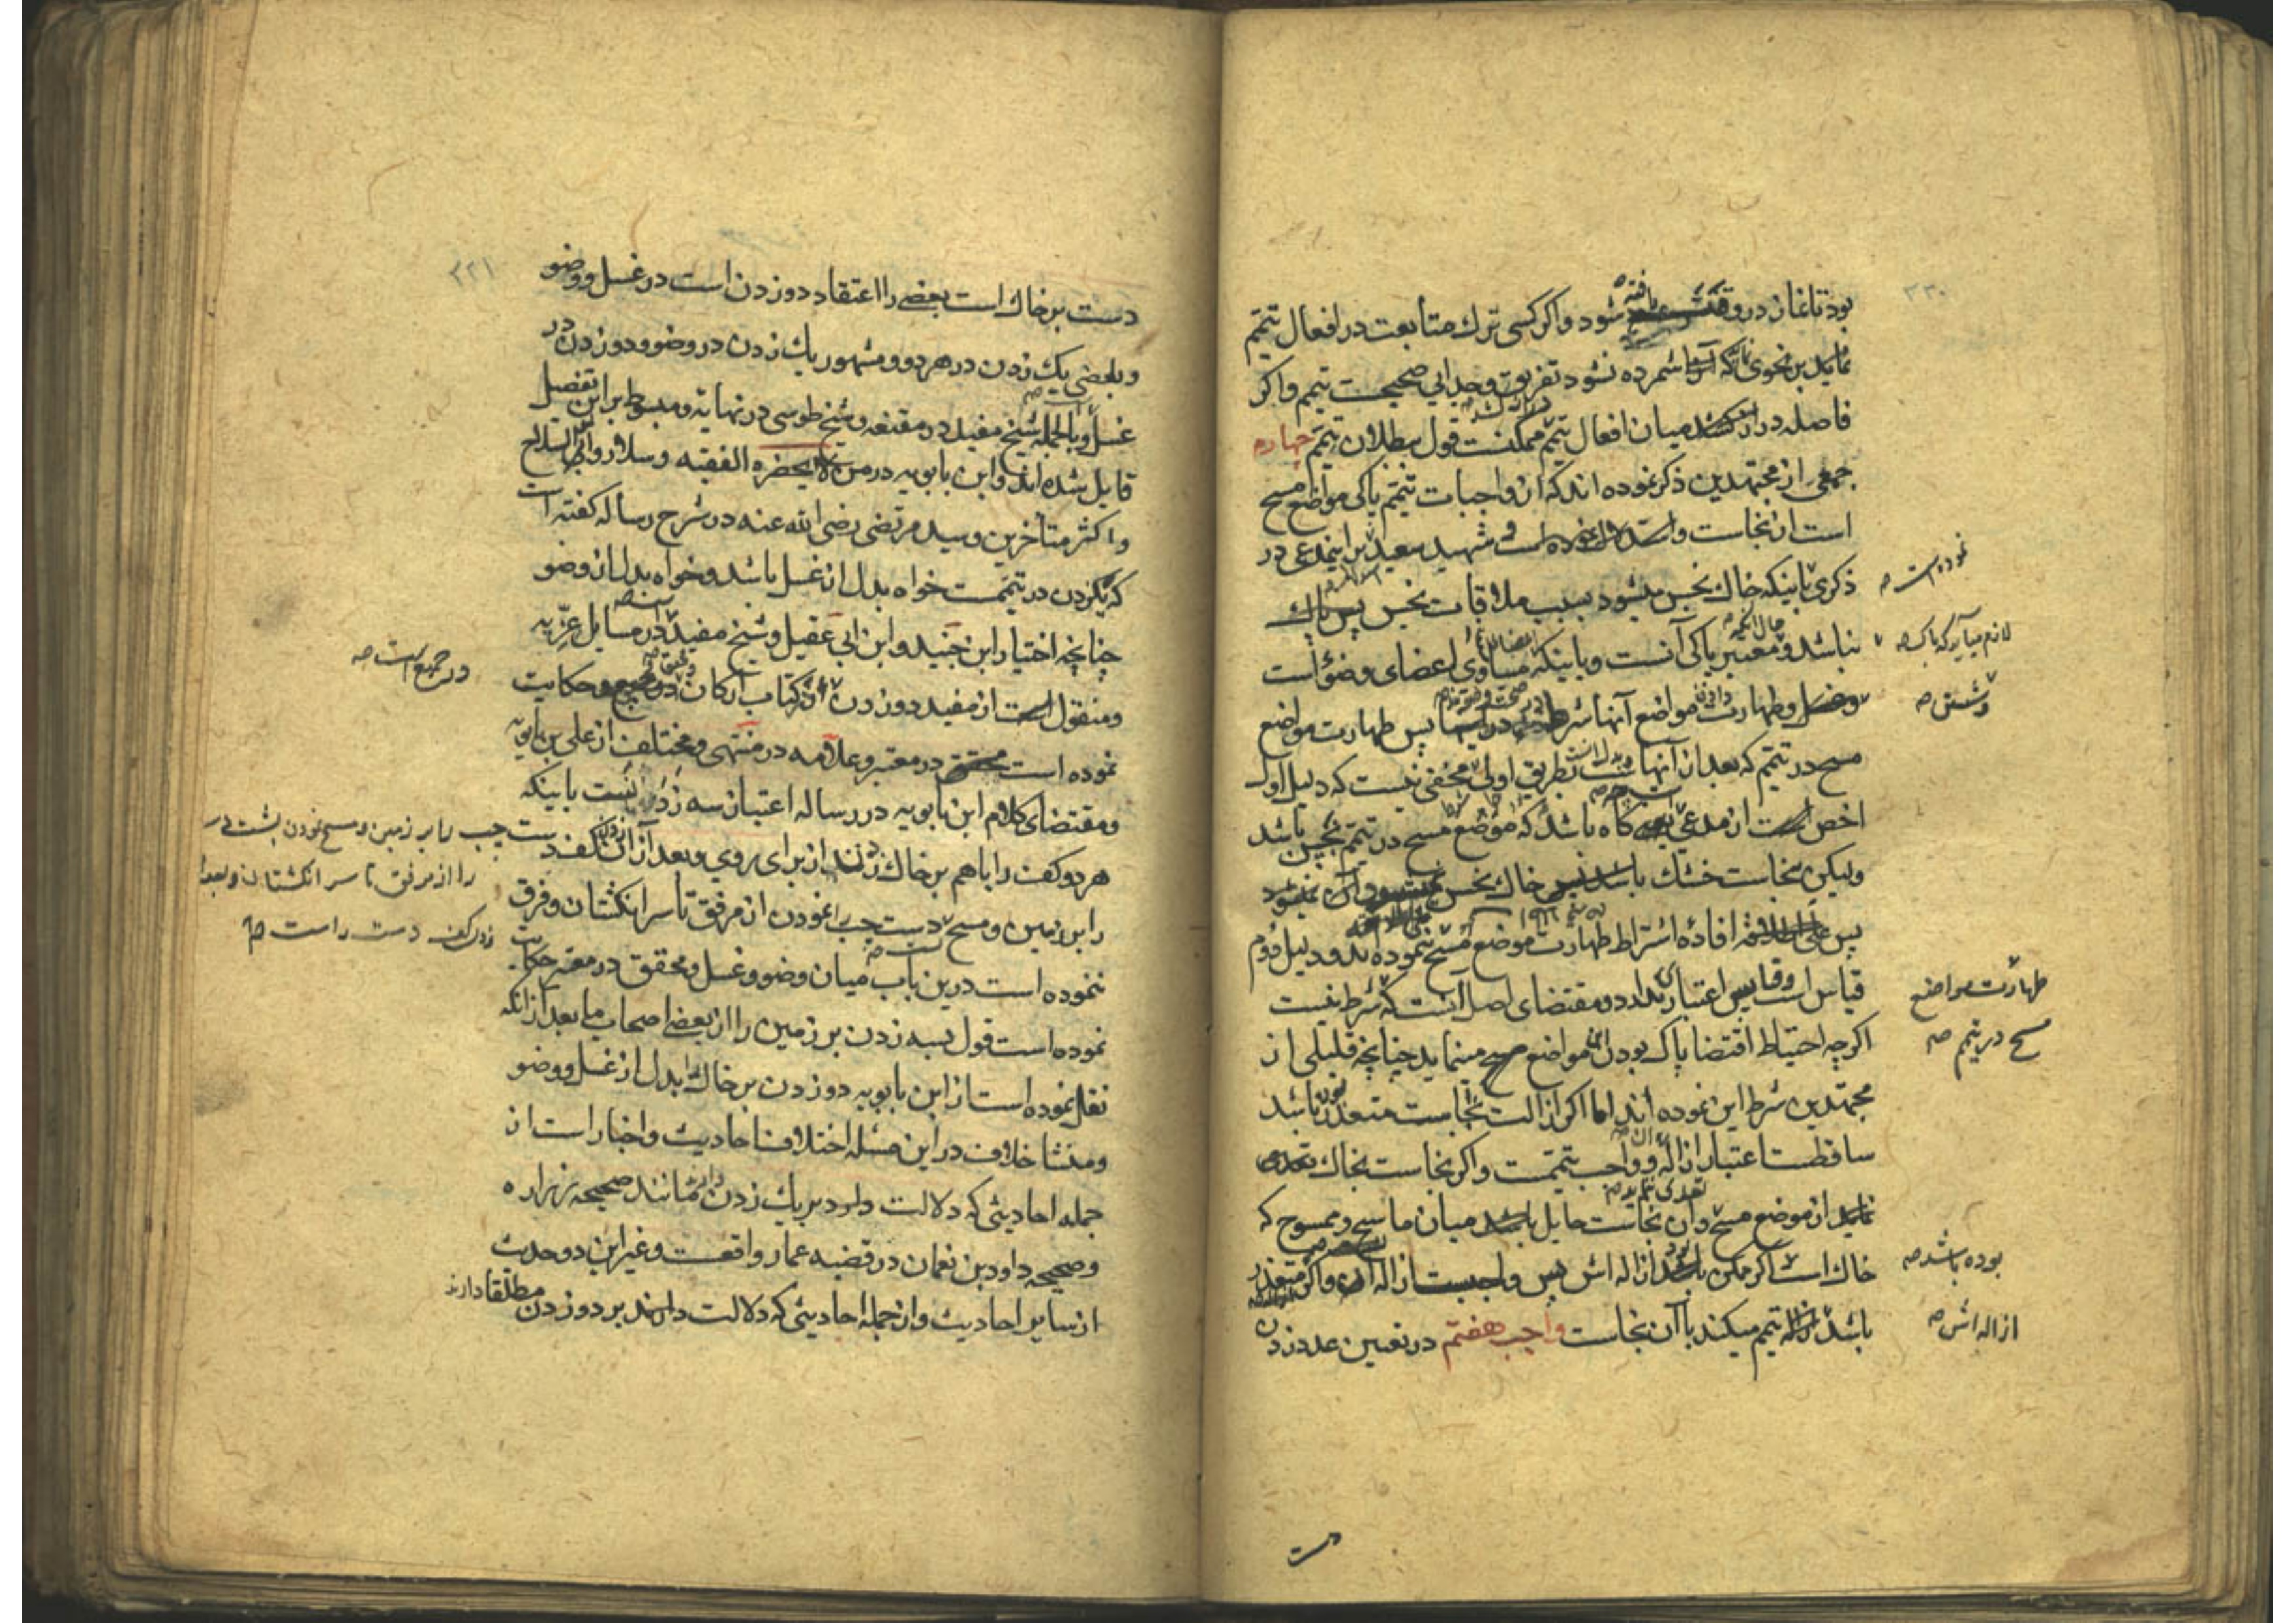 ۲۳۰
بود تا غاز در وقتش یافته شود و اگر کسی ترک متابعت در افعال تیمم
نماید بر نحوی که شمرده نشود تفریق و جدایی صحیحست تیمم و اگر
فاصله در از میان افعال تیمم ممکنست قول ببطلان تیمم چهارم
جمعی از مجتهدین ذکر نموده اند که از واجبات تیمم پاکی مواضع مسح
است از نجاست و استدلال شهید سعید بر اینمدعی در
نموده است صح
ذکری باینکه خاک نجس میشود بسبب ملاقات نجس پس پاک
لازم میآید که پاک صح
نباشد و معتبر پاکی آنست و باینکه مساوی اعضای وضو است
و شستن صح
و طهارت مواضع آنها شرط پس طهارت مواضع
مسح در تیمم که بعد از آنها بطریق اولی مخفی نیست که دلیل اول
اخص است از مدعی گاه باشد که موضع مسح در تیمم نجس باشد
ولیکن نجاست خشک باشد پس خاک نجس نمیشود
پس افادهٔ اشتراط طهارت موضع مسح ننموده اند و دلیل دوم
طهارت مواضع
قیاس است و قیاس اعتبار ندارد و مقتضای اصل آنست که شرط نیست
مسح در تیمم صح
اگرچه احتیاط اقتضا پاک بودن مواضع مسح مینماید چنانچه قلیلی از
مجتهدین شرط این نموده اند اما اگر ازالت نجاست متعذر باشد
ساقطست اعتبار ازاله و واجب تیممست و اگر نجاست بخاک تعدی
نماید از موضع مسح و آن نجاست حایل میان ماسح و ممسوح که
بوده باشد صح
خاک است اگر ممکن ازاله اش پس واجبست ازاله و اگر متعذر
ازاله اش صح
باشد تیمم میکند با آن نجاست واجب هفتم در تعیین عدد زدن
دست
۲۳۱
دست بر خاک است بعضی را اعتقاد دو زدن است در غسل و وضو
و بعضی یک زدن در هر دو و مشهور یک زدن در وضو و دو زدن در
غسل و بالجمله شیخ مفید در مقنعه و شیخ طوسی در نهایه و مبسوط بر این تفصیل
قایل شده اند و ابن بابویه در من لا یحضره الفقیه و سلار و ابو الصلاح
و اکثر متأخرین و سید مرتضی رضی الله عنه در شرح رساله گفته است
که یکزدن در تیممست خواه بدل از غسل باشد و خواه بدل از وضو
چنانچه اختیار ابن جنید و ابن ابی عقیل و شیخ مفید در مسایل غریه
و منقول است از مفید دو زدن از کتاب ارکان حکایت
در جمیع است صح
نموده است محقق در معتبر و علامه در منتهی و مختلف از علی بن بابویه
و مقتضای کلام ابن بابویه در رساله اعتبار سه زدن است باینکه
هر دو کف را با هم بر خاک زدن از برای روی و بعد از آن کف دست
چپ را بر زمین و مسح نمودن پشت دست
را از مرفق تا سر انگشتان و بعد از
زدن کف دست راست صح
را بر زمین و مسح دست چپ را نمودن از مرفق تا سر انگشتان و فرق
ننموده است درین باب میان وضو و غسل و محقق در معتبر حکایت
نموده است قول بسه زدن بر زمین را از بعضی اصحاب ما بعد از آنکه
نقل نموده است از ابن بابویه دو زدن بر خاک را بدل از غسل و وضو
و منشا خلاف در این مسئله اختلاف احادیث و اخبار است از
جمله احادیثی که دلالت دارد بر یک زدن مانند صحیحه زراره
و صحیحه داود بن نعمان در قضیه عمار واقعست و غیر این دو حدیث
از سایر احادیث و از جمله احادیثی که دلالت دارند بر دو زدن مطلقا دارند